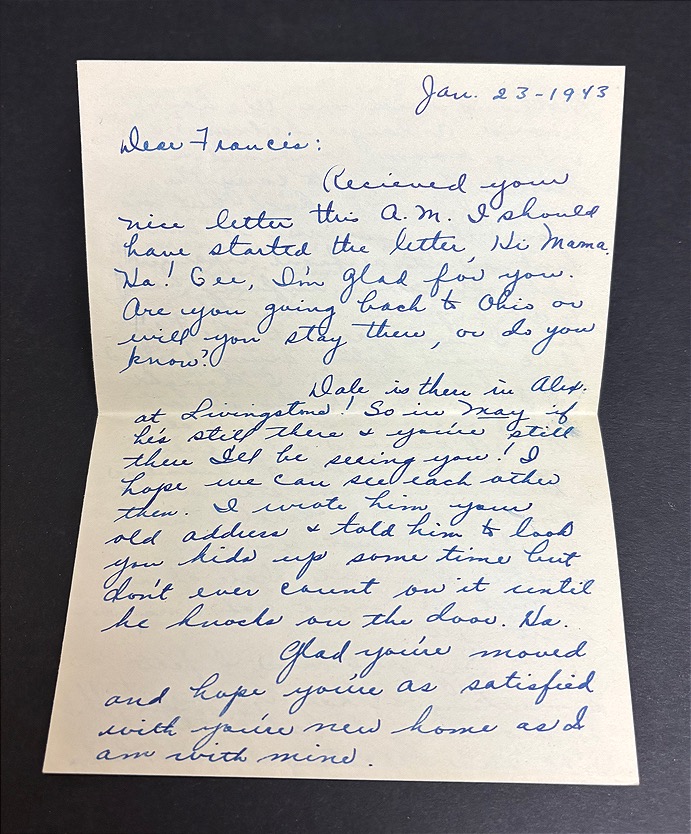 Jan. 23-1943
Dear Francis:
Recieved your
nice letter this A.M. I should
have started the letter, Hi Mama.
Ha! Gee, I'm glad for you.
Are you going back to Ohio or
will you stay there, or do you
know?
Dale is there in Alex.
at Livingstone! So in May if
he's still there & you're still
there I'll be seeing you! I
hope we can see each other
then. I wrote him your
old address & told him to look
you kids up some time but
don't ever count on it until
he knocks on the door. Ha.
Glad you're moved
and hope you're as satisfied
with you're new home as I
am with mine.